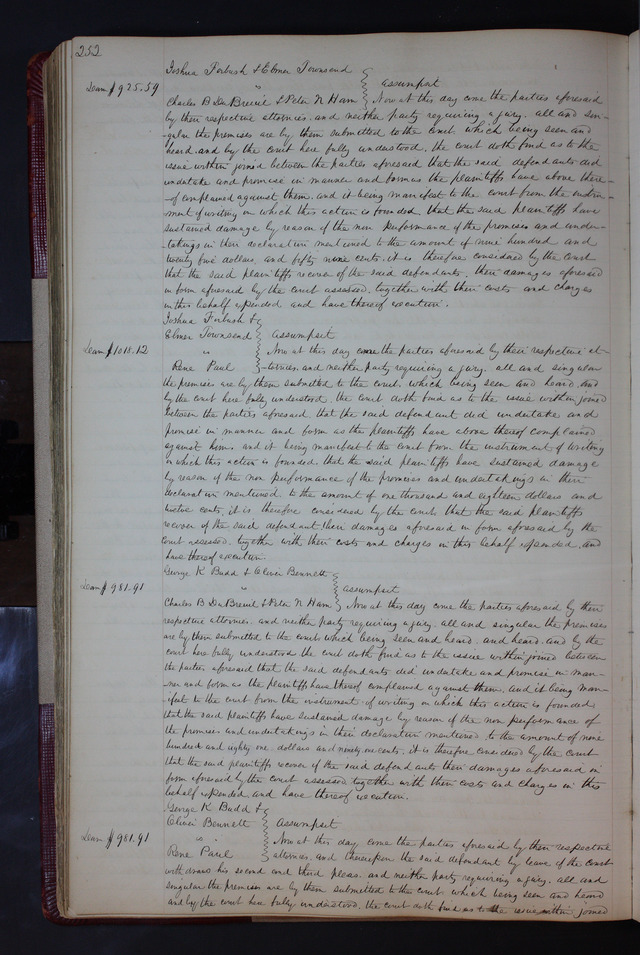 252
Joshua Forbush & Elmer Townsend
Dam $925.59
" assumpsit
Charles B Du Breuil & Peter N Ham Now at this day come the parties aforesaid
by their respective attornies, and neither party requiring a jury, all and sin-
gular the premises are by them submitted to the court, which being seen and
heard, and by the court here fully understood, the court doth find as to the
issue within joined between the parties aforesaid that the said defendants did
undertake and promise in manner and form as the plaintiffs have above there-
of complained against them, and it being manifest to the court from the instru-
ment of writing on which this action is founded, that the said plaintiffs have
sustained damage by reason of the non performance of the promises and under-
takings in their declaration mentioned to the amount of nine hundred and
twenty five dollars, and fifty nine cents, it is therefore considered by the court
that the said plaintiffs recover of the said defendants, their damages aforesaid
in form aforesaid by the court assessed, together with their costs and charges
in this behalf expended and have thereof execution.
Joshua Forbush &
Elmer Townsend assumpsit
Dam $1018.12
" Now at this day come the parties aforesaid by their respective at-
Rene Paul -tornies, and neither party requiring a jury, all and singular
the premises are by them submitted to the court, which being seen and heard, and
by the court here fully understood, the court doth find as to the issue within joined
between the parties aforesaid, that the said defendant did undertake and
promise in manner and form as the plaintiffs have above thereof complained
against him, and it being manifest to the court from the instrument of writing
on which this action is founded, that the said plaintiffs have sustained damage
by reason of the non performance of the promises and undertakings in their
declaration mentioned, to the amount of one thousand and eighteen dollars and
twelve cents, it is therefore considered by the court that the said plaintiffs
recover of the said defendant their damages aforesaid in form aforesaid by the
court assessed, together with their costs and charges in this behalf expended, and
have thereof execution.
George K Budd & Oliver Bennett
Dam $981.91
" assumpsit
Charles B DuBreuil & Peter N Ham Now at this day come the parties aforesaid by their
respective attornies, and neither party requiring a jury, all and singular the premises
are by them submitted to the court which being seen and heard, and heard, and by the
court here fully understood the court doth find as to the issue within joined between
the parties aforesaid that the said defendants did undertake and promise in man-
ner and form as the plaintiffs have thereof complained against them, and it being man-
ifest to the court from the instrument of writing, on which this action is founded
that the said plaintiffs have sustained damage by reason of the non performance of
the promises and undertakings in their declaration mentioned, to the amount of nine
hundred and eighty one dollars and ninety one cents, it is therefore considered by the court
that the said plaintiffs recover of the said defendants their damages aforesaid in
form aforesaid by the court assessed, together with their costs and charges in this
behalf expended, and have thereof execution.
George K Budd &
Oliver Bennett assumpsit
Dam $981.91
" " Now at this day come the parties aforesaid by their respective
Rene Paul attornies, and thereupon the said defendant by leave of the court
with draws his second and third pleas, and neither party requiring a jury, all and
singular the premises are by them submitted to the court which being seen and heard
and by the court here fully understood, the court doth find as to the issue within joined